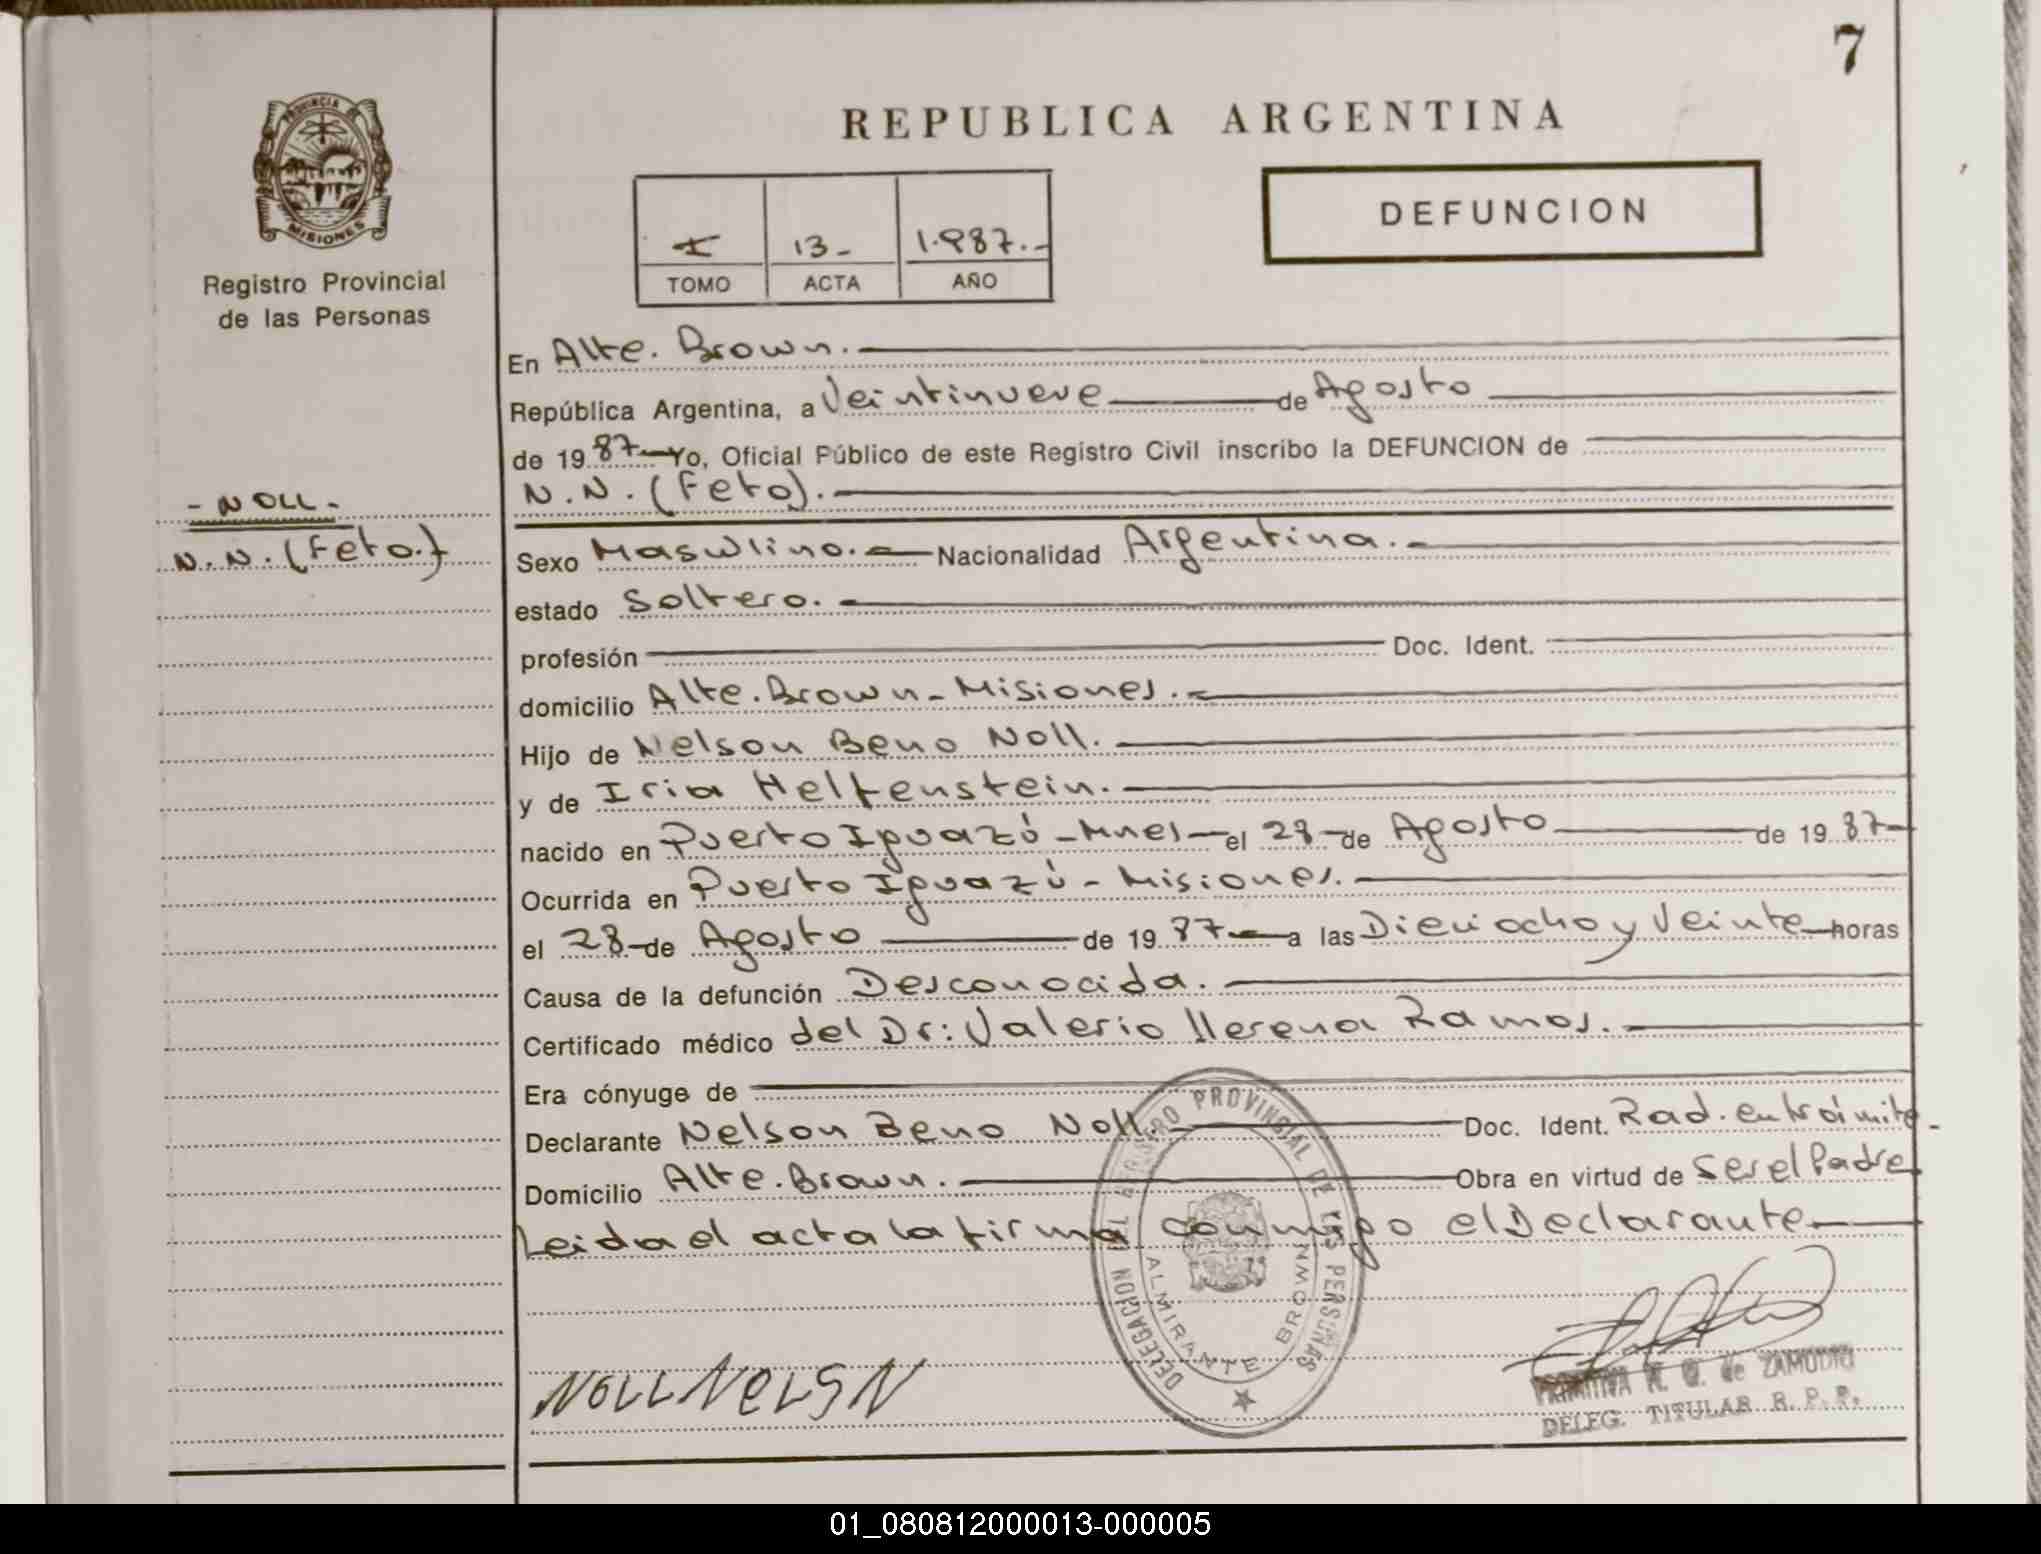 7
PROVINCIA DE
MISIONES
Registro Provincial
de las Personas
REPUBLICA ARGENTINA
I 13- 1.987.-
TOMO ACTA AÑO
DEFUNCION
En Alte. Brown.
República Argentina, a Veintinueve de Agosto
de 19 87 Yo, Oficial Público de este Registro Civil inscribo la DEFUNCION de
N.N. (Feto).
- NOLL -
N.N. (Feto.)
Sexo Masculino. Nacionalidad Argentina.
estado Soltero.
profesión Doc. Ident.
domicilio Alte. Brown - Misiones.
Hijo de Nelson Beno Noll.
y de Iria Helfenstein.
nacido en Puerto Iguazú - Mnes el 28 de Agosto de 19 87
Ocurrida en Puerto Iguazú - Misiones.
el 28 de Agosto de 19 87 a las Dieciocho y Veinte horas
Causa de la defunción Desconocida.
Certificado médico del Dr: Valerio Llerena Ramos.
Era cónyuge de
Declarante Nelson Beno Noll. Doc. Ident. Rad. en trámite
Domicilio Alte. Brown. Obra en virtud de ser el Padre
Leida el acta la firma conmigo el Declarante
DELEGACION DEL REGISTRO PROVINCIAL DE LAS PERSONAS
ALMIRANTE BROWN
NOLL NELSN
PRIMITIVA R. G. de ZAMUDIO
DELEG. TITULAR R. P. P.
01_080812000013-000005